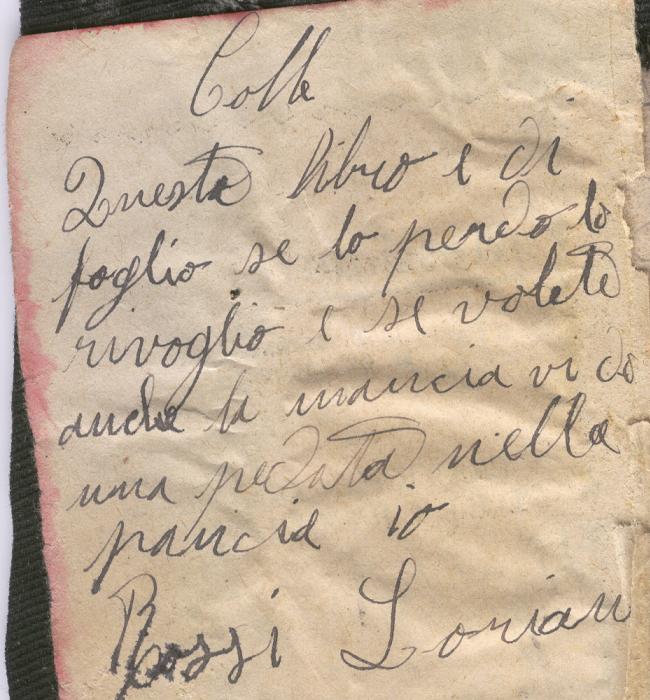 Colle
Questo libro e di
foglio se lo perdo lo
rivoglio e se volete
anche la mancia vi do
una pedata nella
pancia io
Rossi Lorian